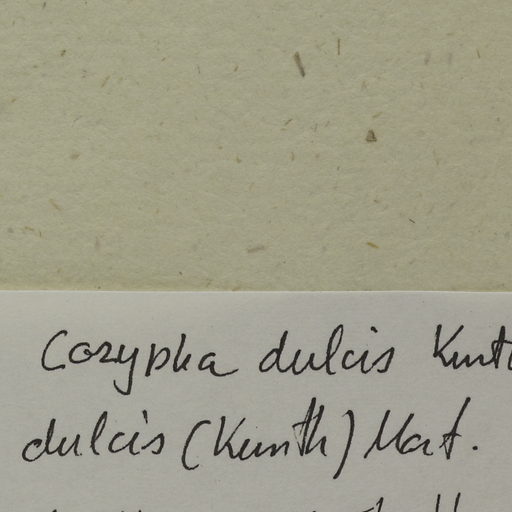 Corypha dulcis Kunth
dulcis (Kunth) Mart.